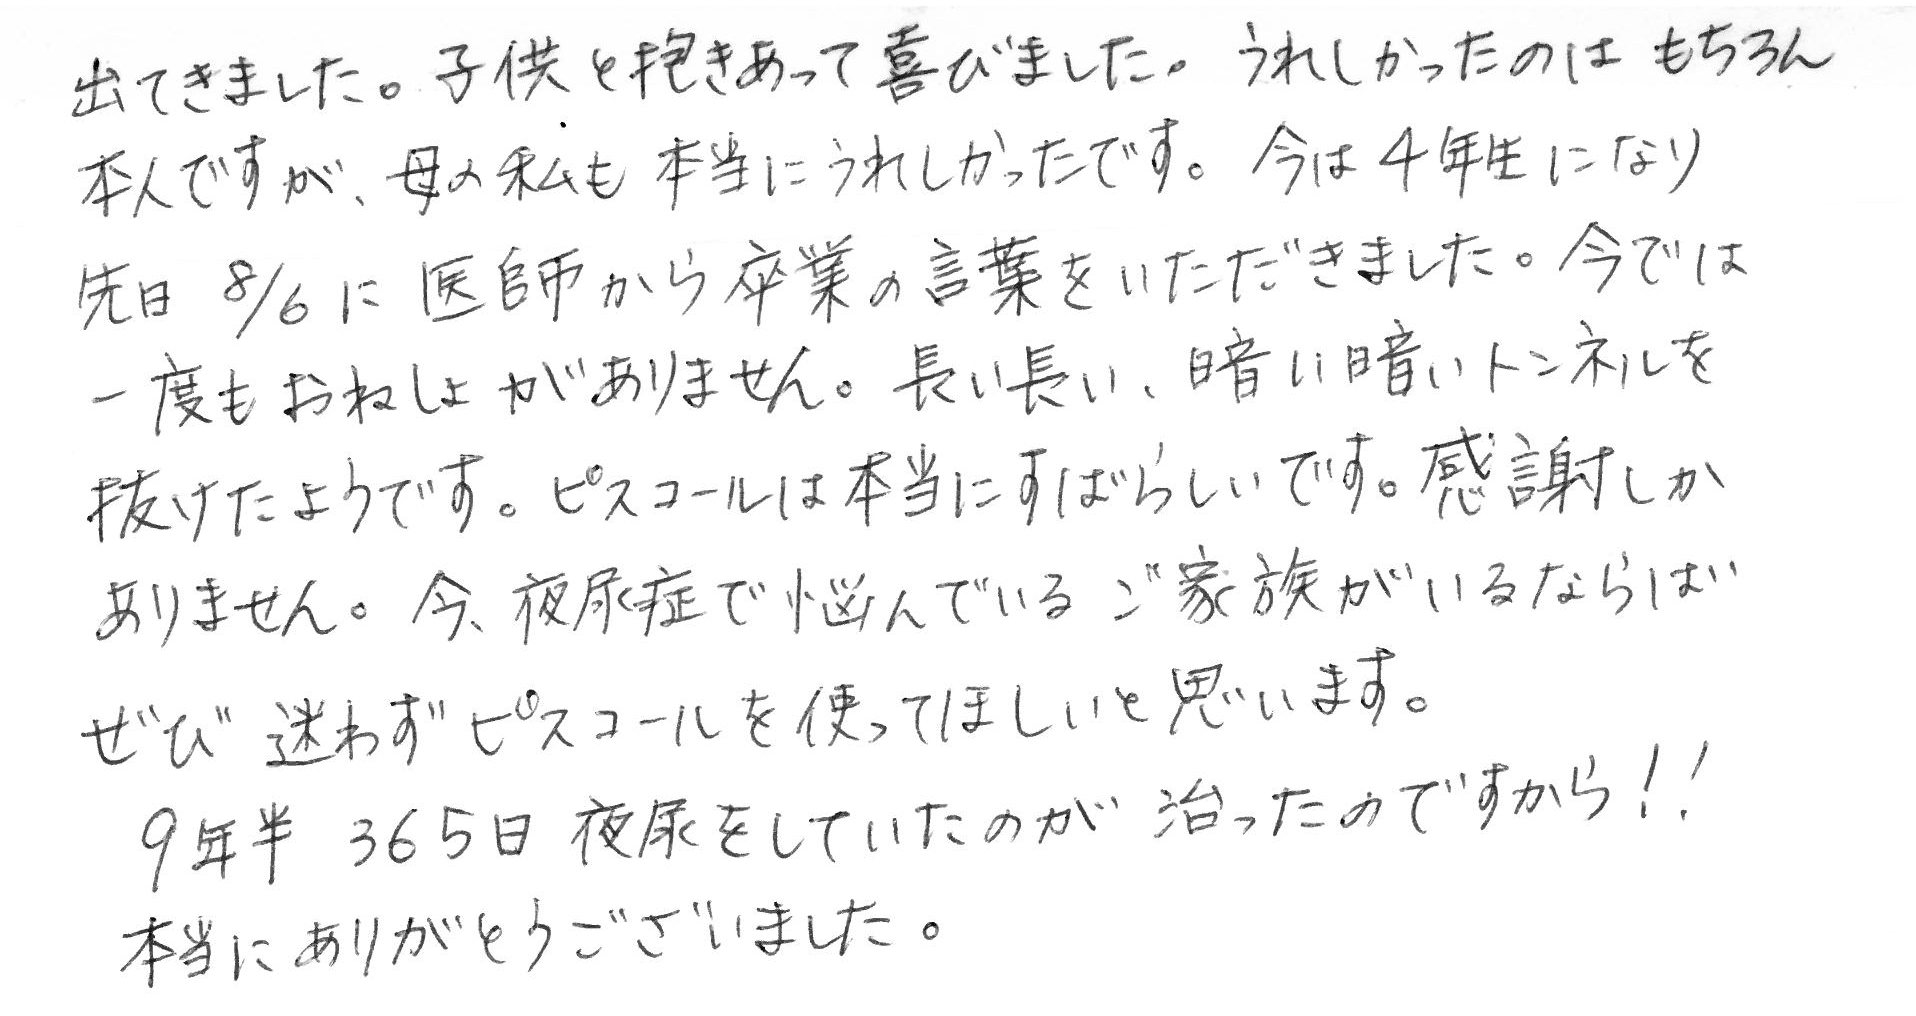 出てきました。子供と抱きあって喜びました。うれしかったのは もちろん
本人ですが、母の私も 本当にうれしかったです。今は4年生になり
先日 8/6に 医師から卒業の言葉をいただきました。今では
一度もおねしょがありません。長い長い、暗い暗いトンネルを
抜けたようです。ピスコールは本当にすばらしいです。感謝しか
ありません。今、夜尿症で悩んでいるご家族がいるならば
ぜひ 迷わずピスコールを使ってほしいと思います。
9年半 365日 夜尿をしていたのが 治ったのですから!!
本当にありがとうございました。